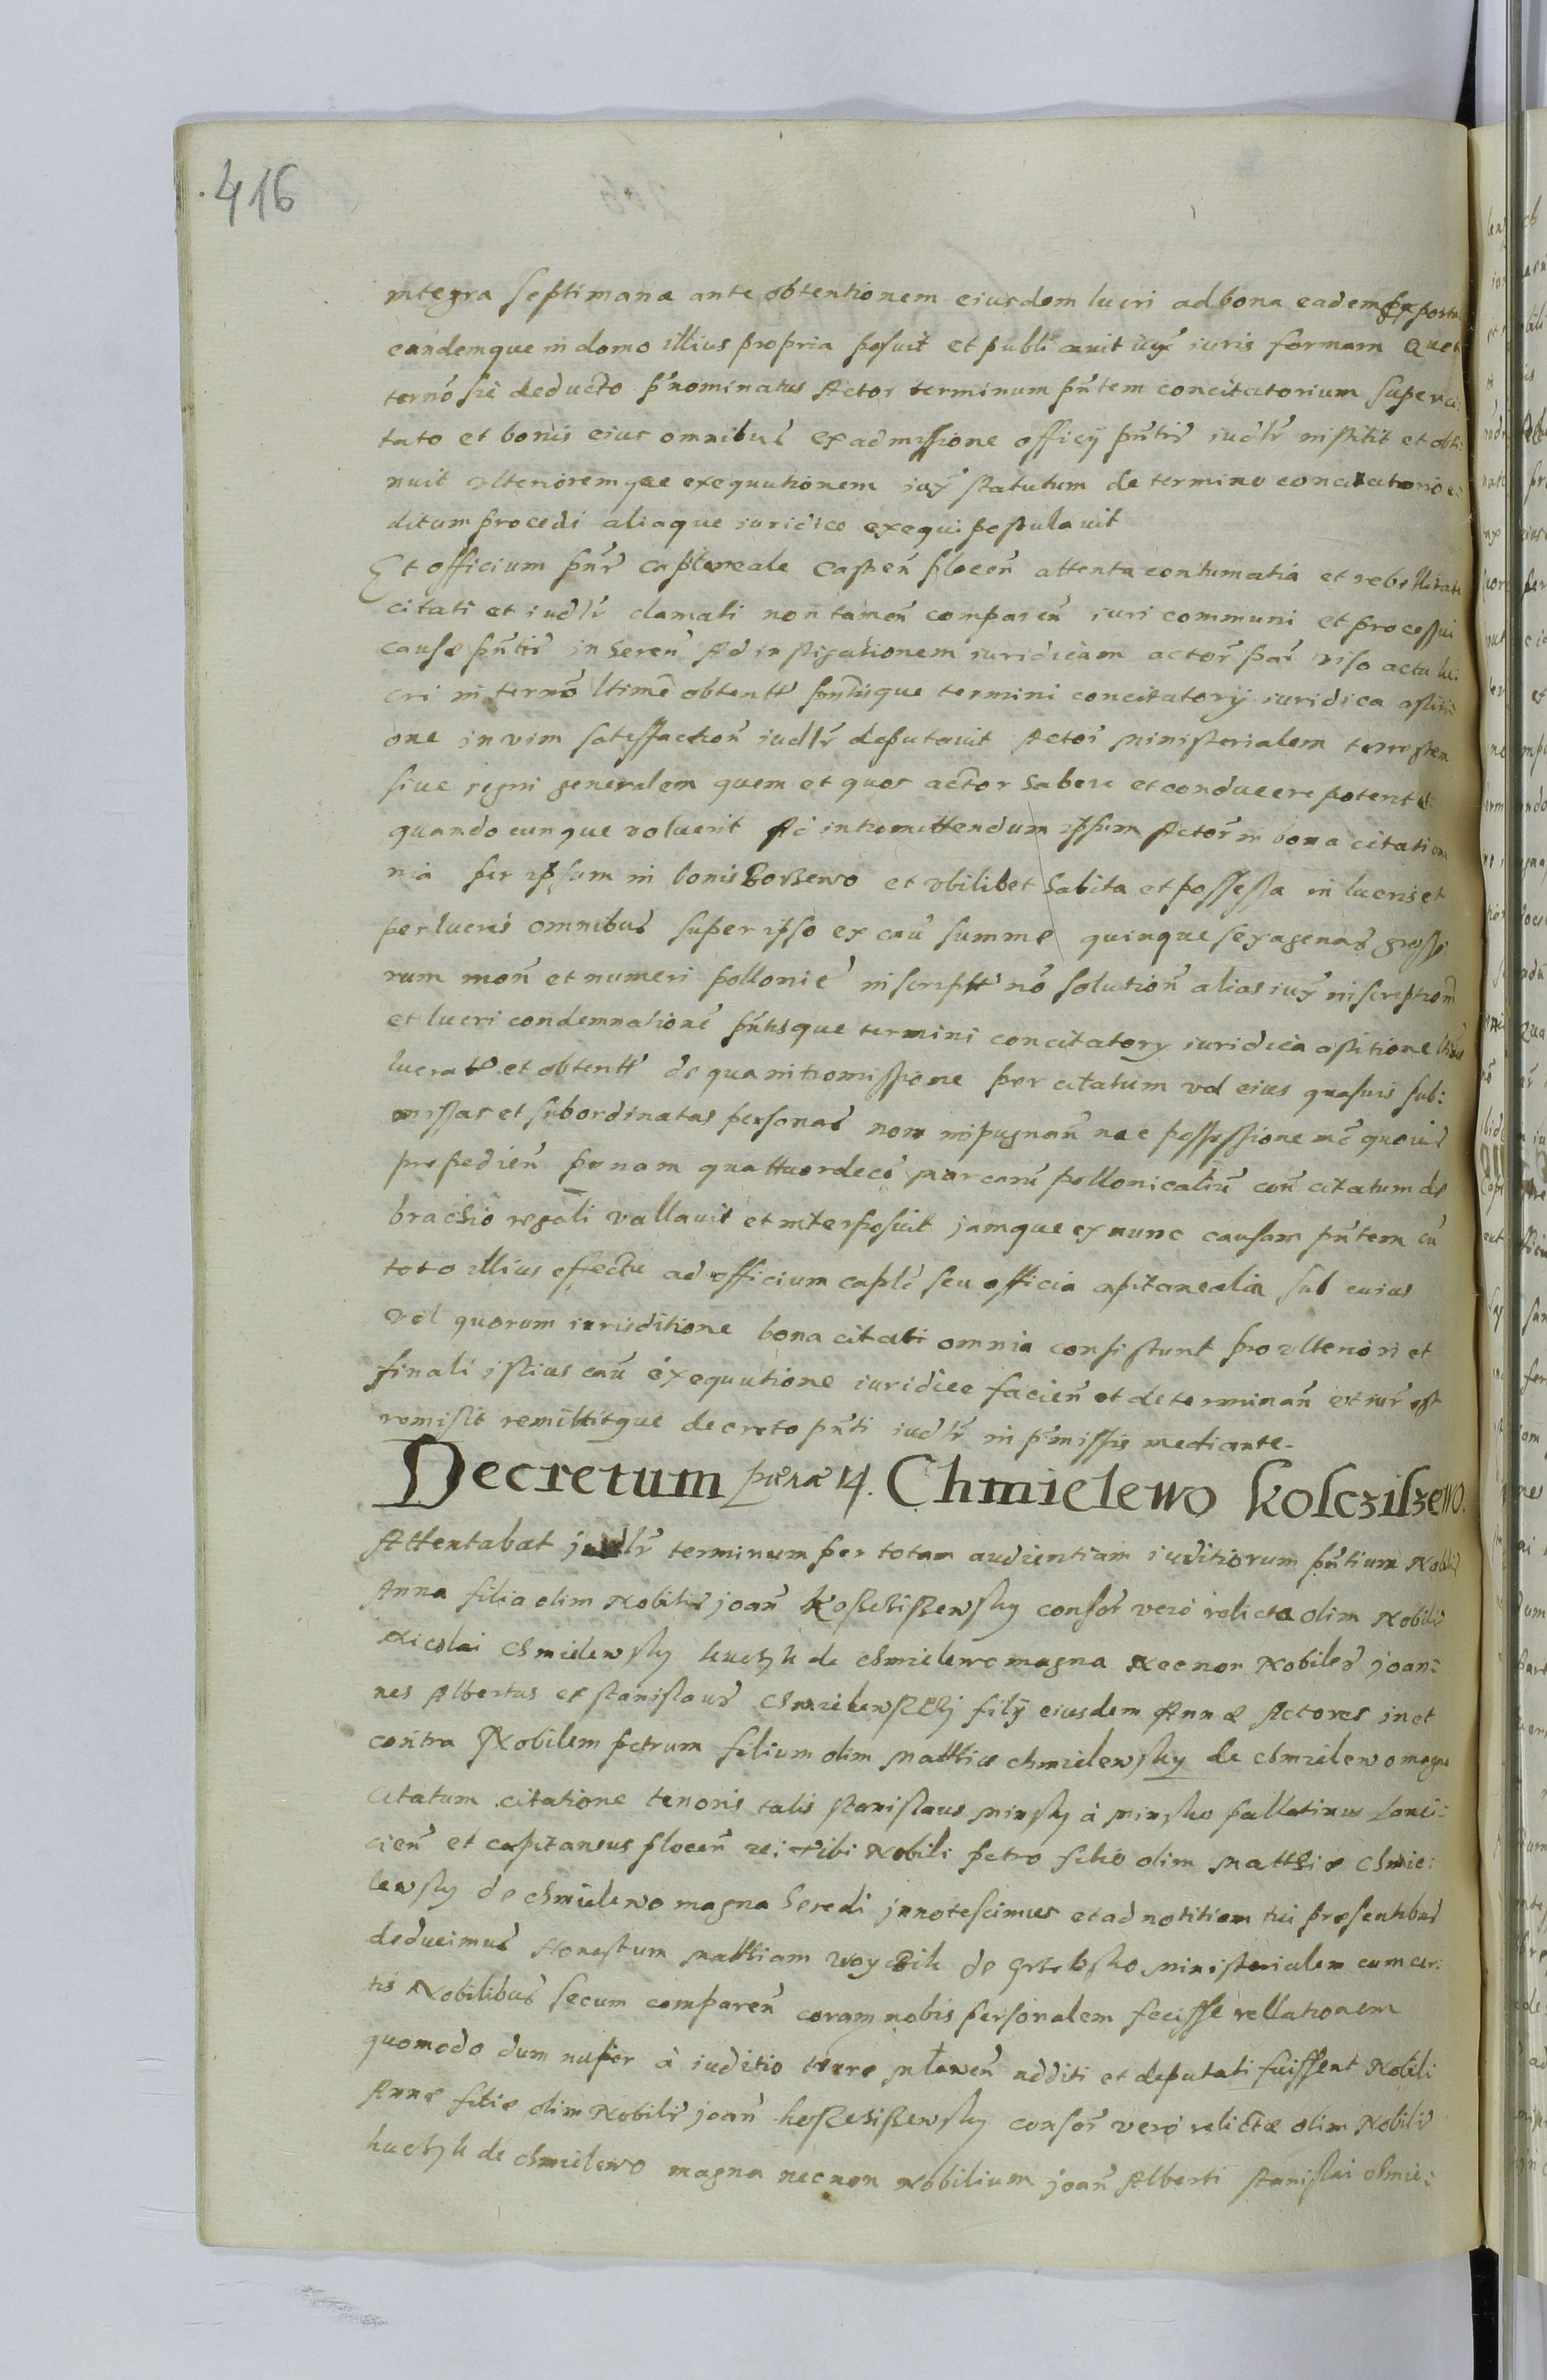 416
integra septimana ante obtentionem eiusdem lucri ad bona eadem
eandemque in domo illius propria posuit et publicavit iux iuris formam Quo
termo sic deducto pnominatus Actor terminum pntem concitatorium super ci:
tato et bonis eius omnibus ex admissione officij pntis iudlr institit et obti:
nuit ulterioremque exequutionem iux statutum de termino concitatorio e:
ditum procedi aliaque iuridice exequi postulavit
Et officium pns captaneale Castren plocen attenta contumatia et rebellitate
citati et iudlr clamati non tamen comparen iuri communi et processui
causæ pntis inheren Ad instigationem iuridicam actor par viso actu lu:
cri in termo ltime obtentt pntisque termini concitatorij iuridica astiti:
one in vim satisfaction iudlr deputavit Actori ministerialem terrestrem
sive regni generalem quem et quos actor habere et conducere poterit et
quando cunque voluerit Ad intromittendum ipsum Actorem in bona citati om
nia per ipsum in bonis Borzewo et ubilibet habita et possessa in lucris et
perlucris omnibus super ipso ex cau summe quinque sexagenas grosso
rum mon et numeri polloniē inscriptt no solution alias iux inscription
et lucri condemnatione pntisque termini concitatory iuridica astitione ltime
lucratt et obtentt de qua intromissione per citatum vel eius quasvis sub:
missas et subordinatas personas non impugnan nec possessione me quovis
prepedien penam quattuordecē marcarū pollonicaliū con citatum de
brachio regali vallavit et interposuit jamque ex nunc causam pntem cu
toto illius effectu ad officium captle seu officia capitanealia sub cuius
vel quorum iurisditione bona citati omnia consistunt pro ulteriori et
finali istius cau exequutione iuridice facien et determinan ut iur est
remisit remittitque decreto pnti iudlr in pmissis mediante.
Decretum pœna 14. Chmielewo Kolczilzewo.
Attentabat judlr terminum per totam audientiam iuditiorum pntium Nobilis
Anna filia olim Nobilis joan consor vero relicta olim Nobilis
Nicolai Chmielewsky de Chmielewo magna Necnon Nobiles joan:
nes Albertus et stanislaus Chmielewszczij filij eiusdem Annæ Actores in et
contra Nobilem petrum filium olim Matthiæ chmielewsky de Chmielewo magna
citatum citatione tenoris talis stanislaus minsky à minsko pallatinus lanci:
cien et capitaneus plocen zc: tibi Nobili petro filio olim Matthiæ Chmie:
lewsky de chmielewo magna heredi jnnotescimus et ad notitiam tui presentibus
deducimus Honestum Matthiam Woyczik de ministerialem cum cer:
tis Nobilibus secum comparen coram nobis personalem fecisse rellationem
quomodo dum nuper à iuditio terre mlawen additi et deputati fuissent Nobili
Annæ filiæ olim Nobilis joan consor vero relictæ olim Nobilis
de chmielewo magna necnon nobilium joan Alberti stanislai chmie: